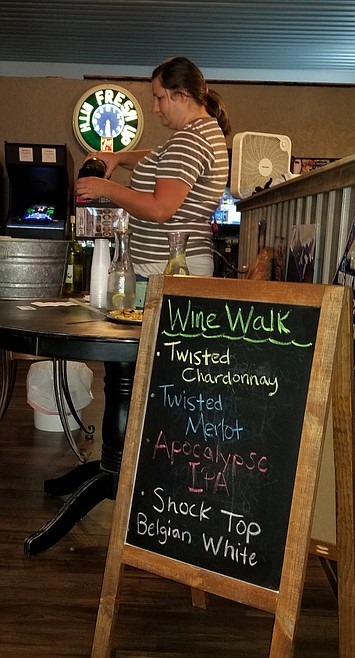 FRESH UP
WITH
Wine Walk
• Twisted
Chardonnay
• Twisted
Merlot
• Apocalypse
IPA
• Shock Top
Belgian White